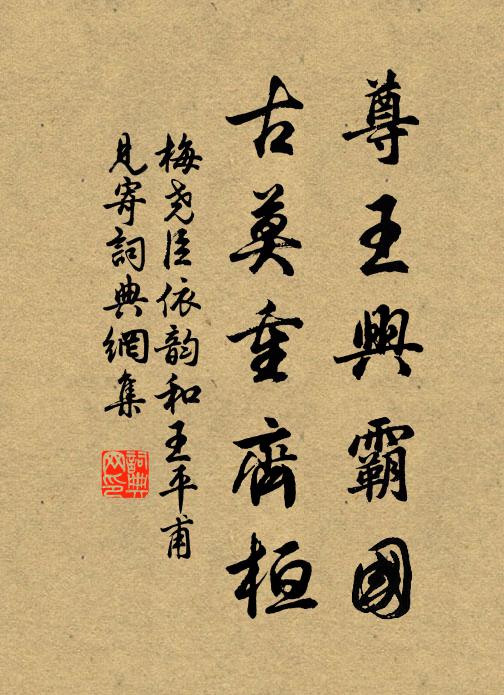 尊王興霸國
古莫重齊桓
梅堯臣依韵和王平甫
見寄詞典網集
詞典网印